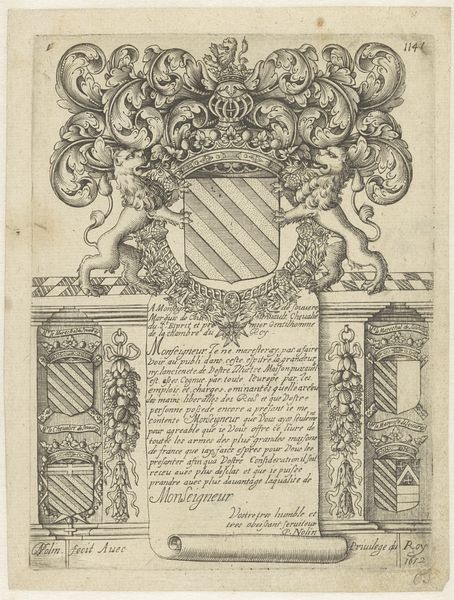 1
1141
A Monseig
de Souuré
Marquis de
Cheualier
du St Esprit et pr
mier Gentilhomme
de la chambre du
Roy
Monseigneur Je ne marresteray pas a faire
Voir au publi dans ceste espitre la grandeur
ny lancienete de Vostre Illustre Maison puis quil
est asses Cognue par toute leurope par les
emplois et charges eminantes quelle a receu
des mains liberalles des Rois et que Vostre
personne posede encore a presant ie me
contente Monseigneur que Vous ayes seulement
pour agreable que ie Vous offre ce liure de
toutte les armes des plus grandes maisons
de france que iay faict espres pour Vous les
presenter afin que Vostre Consideration il soit
receu aues plus desclat et que ie puisse
prandre auec plus dauantage la qualite de
Monseigneur
Vostre tres humble et
tres obeissant seruiteur
P. Nolin
Le Mareschal de
Le Mareschal de
Le Cheualier de
Le Marquis de
P. Nolin fecit Auec
Priuilege du Roy
1652